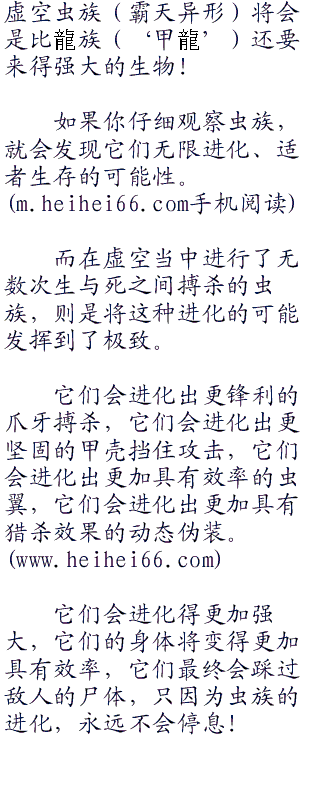 虚空虫族（霸天异形）将会
是比龍族（‘甲龍’）还要
来得强大的生物！
如果你仔细观察虫族，
就会发现它们无限进化、适
者生存的可能性。
(m.heihei66.com手机阅读)
而在虚空当中进行了无
数次生与死之间搏杀的虫
族，则是将这种进化的可能
发挥到了极致。
它们会进化出更锋利的
爪牙搏杀，它们会进化出更
坚固的甲壳挡住攻击，它们
会进化出更加具有效率的虫
翼，它们会进化出更加具有
猎杀效果的动态伪装。
(www.heihei66.com)
它们会进化得更加强
大，它们的身体将变得更加
具有效率，它们最终会踩过
敌人的尸体，只因为虫族的
进化，永远不会停息！